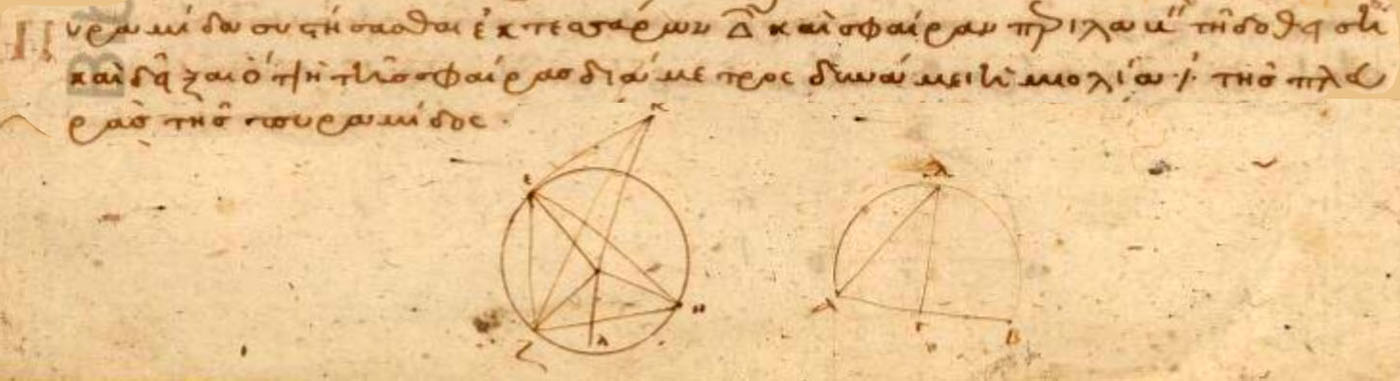 Πυραμίδα συστήσασθαι ἐκ τεσσάρων Δ καὶ σφαίραν τῆ δοθείση
καὶ δεῖξαι ὅτι ἡ τῆς σφαίρας διάμετρος δυνάμει ἡμιολία ÷ τῆς πλευ
ρᾶς τῆς πυραμίδος ·
κ
ε
Δ
η
Α
Γ
Β
Ζ
Λ